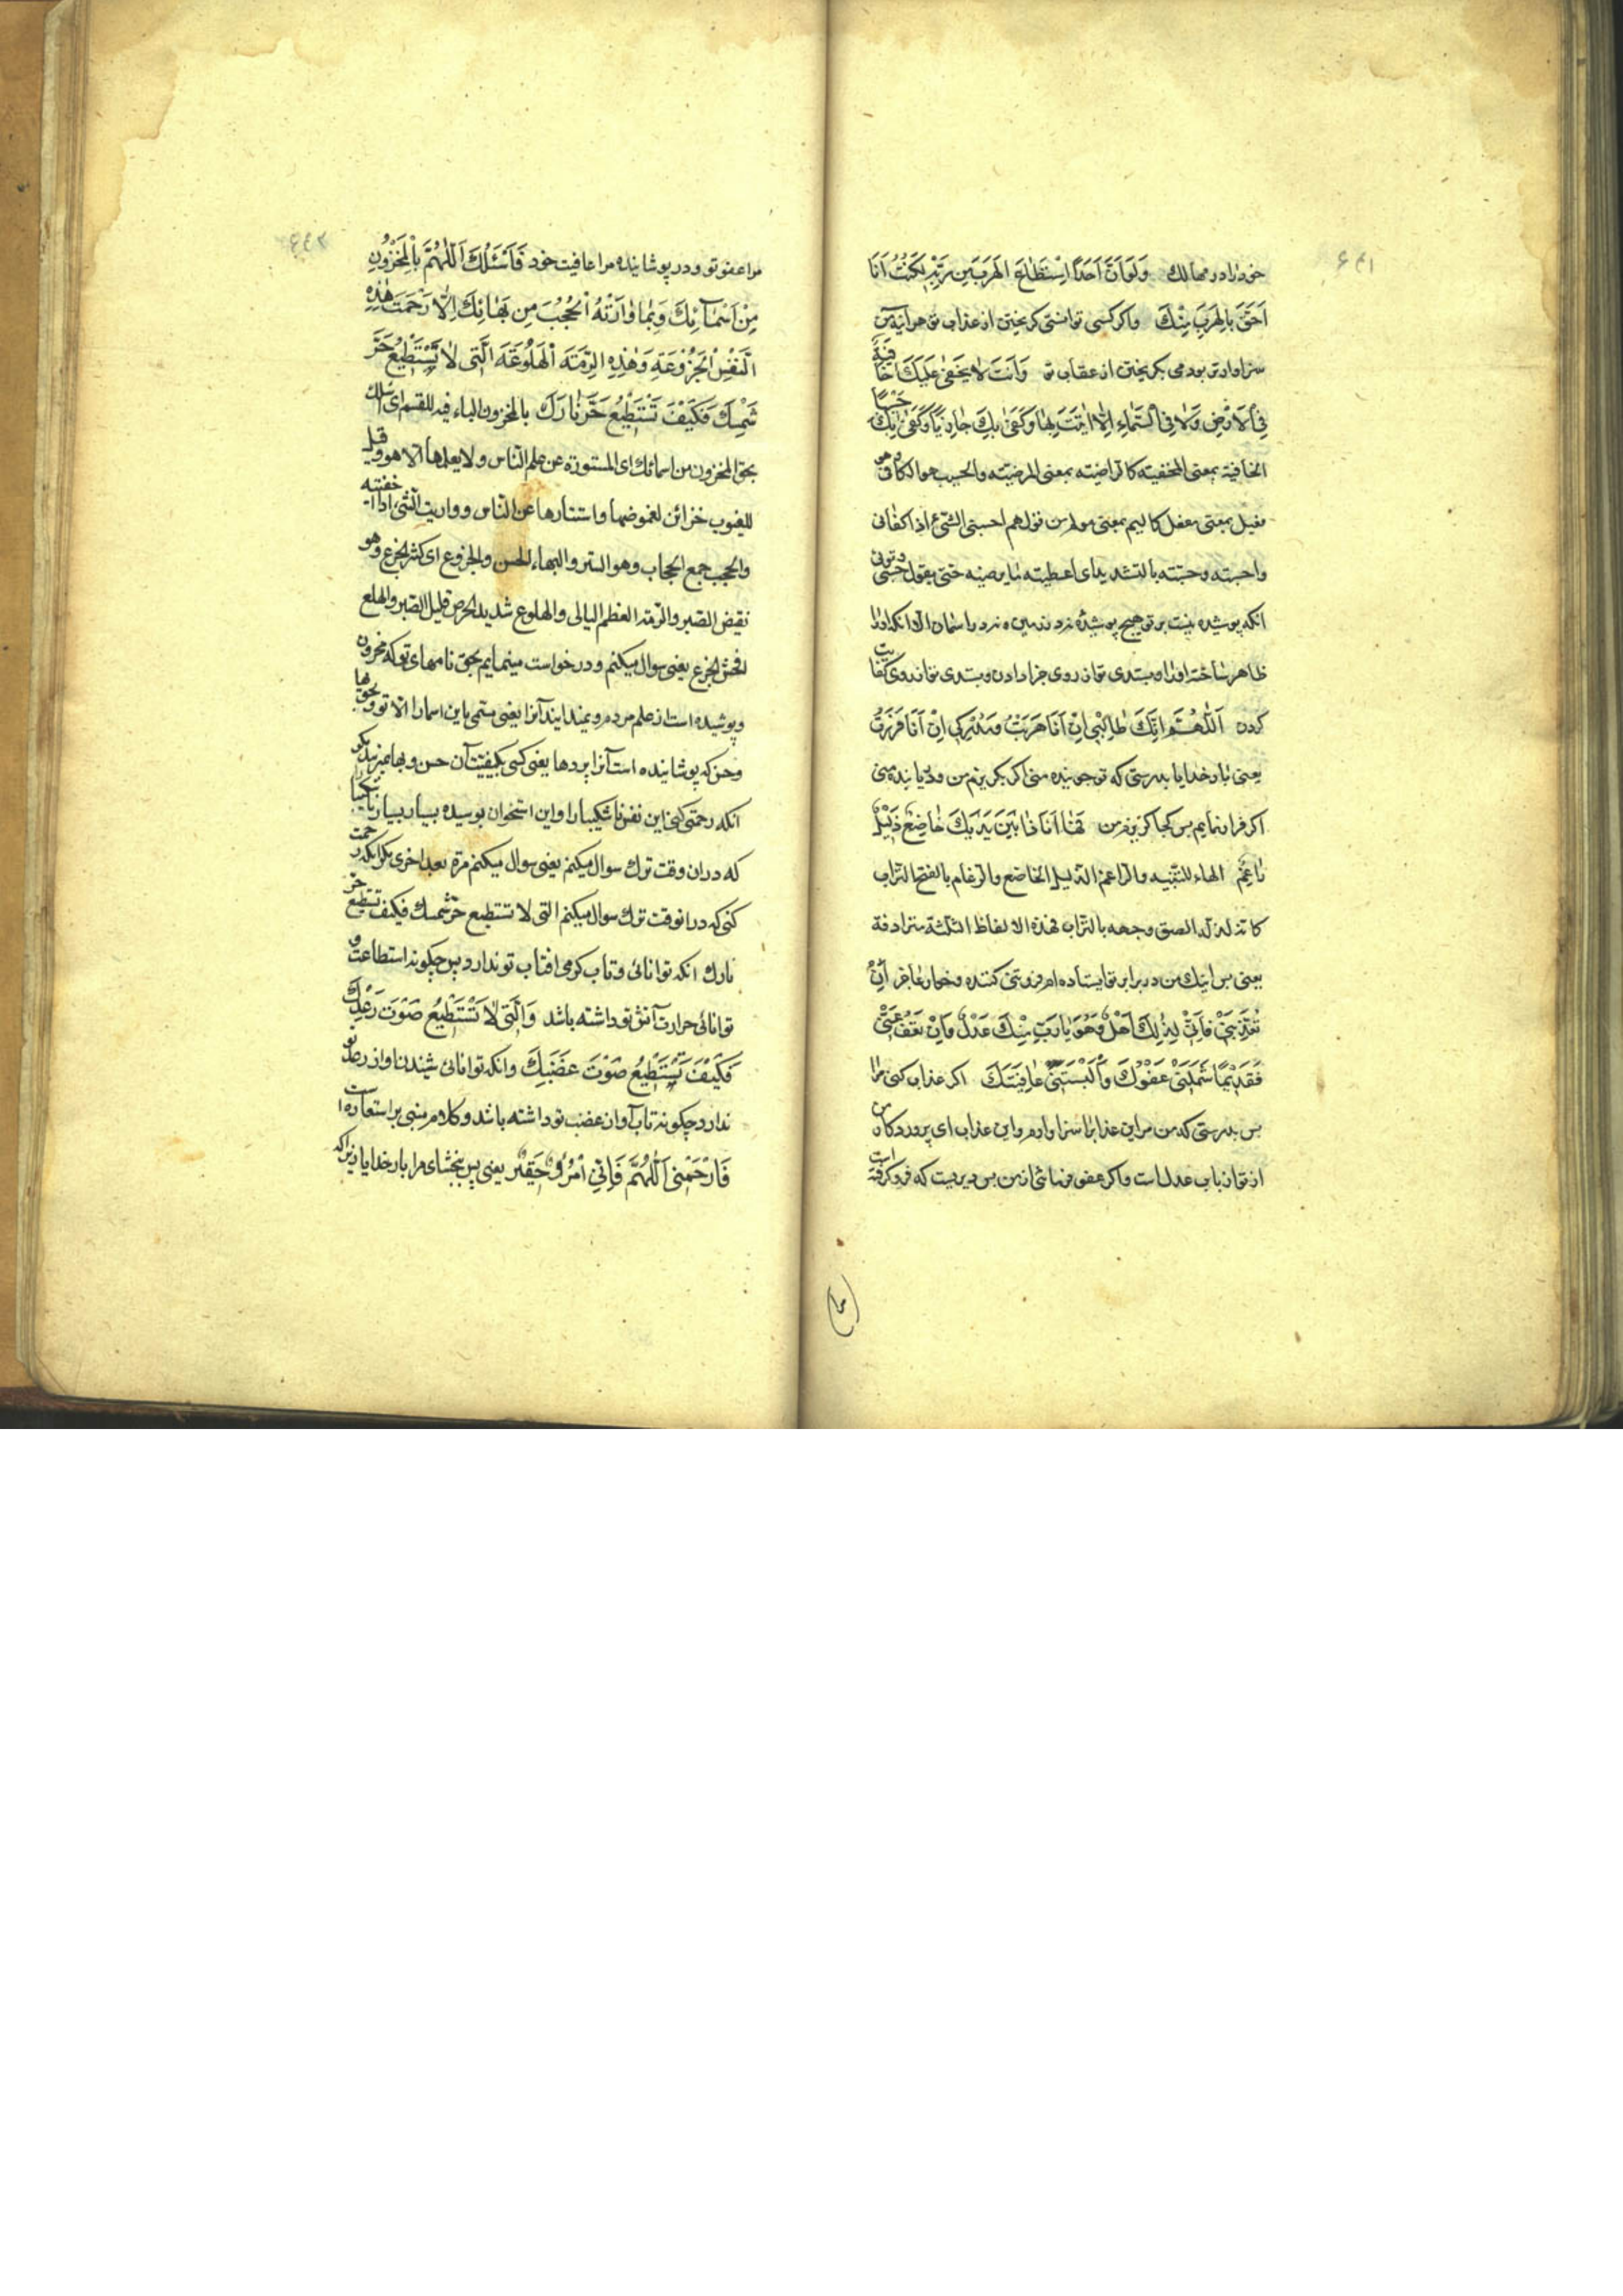 ۶۴۱
خود را در مهالك وَلَوْ اَنَّ اَحَدًا اِسْتَطَاعَ الْهَرَبَ مِنْ رَبِّهِ لَكُنْتُ اَنَا
اَحَقَّ بِالْهَرَبِ مِنْكَ واكر كسى توانستى كريختن از عذاب تو هر آينه من
سزاوارتر بودمى بكريختن از عقاب تو وَاَنْتَ لَا يَخْفىٰ عَلَيْكَ خَافِيَةٌ
فِي الْاَرْضِ وَلَا فِي السَّمَاءِ اِلَّا اَتَيْتَ بِهَا وَكَفىٰ بِكَ جَازِيًا وَكَفىٰ بِكَ حَسِيبًا
الخافية بمعنى المخفية كالراضية بمعنى المرضية والحسيب هو الكافى وهو
فعيل بمعنى مفعل كاليم بمعنى مولم من قولهم احسبنى الشئ اذا كفانى
واحسبته وحسبته بالتشديد اى اعطيته ما يرضيه حتى يقول حسبى
انكه پوشيده نيست بر تو هيچ پوشيدۀ نه در زمين و نه در اسمان الا انكه او را
ظاهر ساخته و بسندى تو از روى جزا دادن و بسندى تو از روى كفايت
كردن اَللّٰهُمَّ اِنَّكَ طَالِبِي اِنْ اَنَا هَرَبْتُ وَمُدْرِكِي اِنْ اَنَا فَرَرْتُ
يعنى بار خدايا بدرستى كه تو جوينده منى اكر بكريزم من و دريابنده منى
اكر فرار نمايم پس كجا كريزم من فَهَا اَنَا ذَا بَيْنَ يَدَيْكَ خَاضِعٌ ذَلِيلٌ
رَاغِمٌ الهاء للتنبيه والراغم الذليل الخاضع والرغام بالفتح التراب
كانه لذله الصق وجهه بالتراب فهذه الالفاظ الثلثة مترادفة
يعنى پس اينك من در برابر تو ايستاده ام فروتنى كننده و خوار و عاجز اِنْ
تُعَذِّبْنِي فَاِنِّي لِذٰلِكَ اَهْلٌ وَهُوَ يَا رَبِّ مِنْكَ عَدْلٌ وَاِنْ تَعْفُ عَنِّي
فَقَدِيمًا شَمَلَنِي عَفْوُكَ وَاَلْبَسْتَنِي عَافِيَتَكَ اكر عذاب كنى مرا
پس بدرستى كه من مر اين عذاب را سزاوارم واين عذاب اى پروردكار من
از تو از باب عدل است واكر عفو فرمائى از من پس ديريست كه فرو كرفته است
۶۴۲
مرا عفو تو و در پوشانيده مرا عافيت خود فَاَسْئَلُكَ اَللّٰهُمَّ بِالْمَخْزُونِ
مِنْ اَسْمَائِكَ وَبِمَا وَارَتْهُ الْحُجُبُ مِنْ بَهَائِكَ اِلَّا رَحِمْتَ هٰذِهِ
النَّفْسَ الْجَزُوعَةَ وَهٰذِهِ الرِّمَّةَ الْهَلُوعَةَ الَّتِي لَا تَسْتَطِيعُ حَرَّ
شَمْسِكَ فَكَيْفَ تَسْتَطِيعُ حَرَّ نَارِكَ بالمخزون الباء فيه للقسم اى اسئلك
بحق المخزون من اسمائك اى المستورة عن علم الناس ولا يعلمها الا هو وقيل
للغيوب خزائن لغموضها واستتارها عن الناس وواريت الشئ اذا اخفيته
والحجب جمع الحجاب وهو الستر والبهاء الحسن والجزوع اى كثير الجزع وهو
نقيض الصبر والرمة العظم البالى والهلوع شديد الحرص قليل الصبر والهلع
افحش الجزع يعنى سوال ميكنم و درخواست مينمايم بحق نامهاى تو كه مخزون
و پوشيده است از علم مردم و نميدانند آنرا يعنى مسمى باين اسما را الا تو و بحق بها
و حسن كه پوشانيده است آنرا پردها يعنى كسى بكيفيت آن حسن و بها نميرسد مكر
انكه رحمت كنى اين نفس ناشكيبا را و اين استخوان پوسيده بسيار بسيار ناشكيبا
كه در ان وقت ترك سوال ميكنم يعنى سوال ميكنم مرة بعد اخرى مكر انكه رحمت
كنى كه در انوقت ترك سوال ميكنم التى لا تستطيع حر شمسك فكيف تستطيع حر
نارك انكه توانائى و تاب كرمى افتاب تو ندارد پس چكونه استطاعت و
توانائى حرارت آتش تو داشته باشد وَالَّتِي لَا تَسْتَطِيعُ صَوْتَ رَعْدِكَ
فَكَيْفَ تَسْتَطِيعُ صَوْتَ غَضَبِكَ وانكه توانائى شنيدن اواز رعد تو
ندارد چكونه تاب آواز غضب تو داشته باشد و كلام مبنى بر استعاره است
فَارْحَمْنِي اَللّٰهُمَّ فَاِنِّي امْرُؤٌ حَقِيرٌ يعنى پس ببخشاى مرا بار خدايا زيرا كه